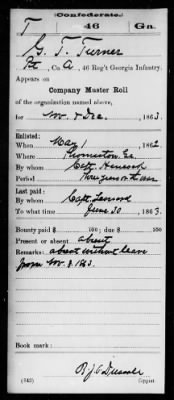 Confederate.
T 46 Ga.
G. T. Turner
Pt, Co. A, 46 Reg't Georgia Infantry.
Appears on
Company Muster Roll
of the organization named above,
for Nov. & Dec., 1863.
Enlisted:
When May 1, 1862
Where Thomaston Ga.
By whom Capt. Hancock
Period Three years or the war
Last paid:
By whom Capt. Leonard
To what time June 30, 1863.
Bounty paid $ 100; due $ 100
Present or absent absent
Remarks: absent without leave
from Nov. 8. 1863.
Book mark:
R. J. C.
(642) Copyist.